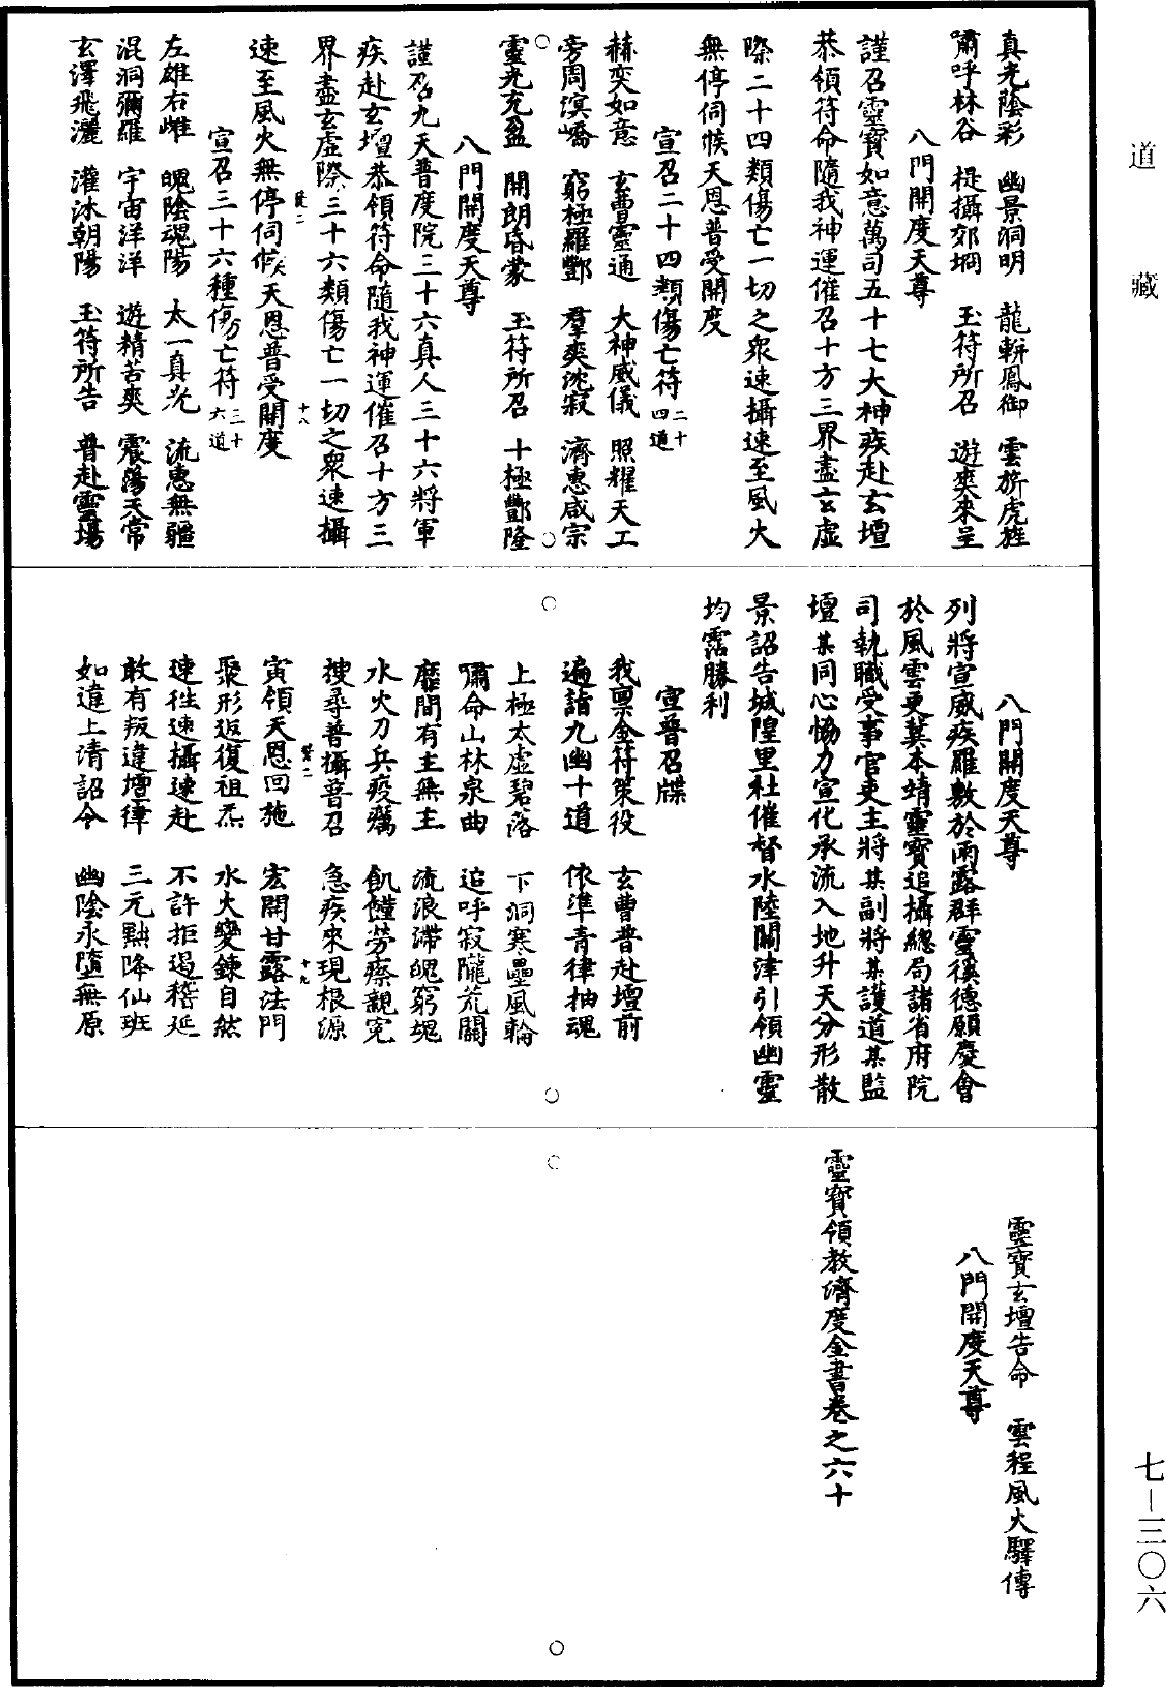 道藏
七-三〇六
真光陰彩　幽景洞明　龍輧鳳御　雲旂虎旌
嘯呼林谷　提攝郊坰　玉符所召　遊爽來呈
八門開度天尊
謹召靈寶如意萬司五十七大神疾赴玄壇
恭領符命隨我神運催召十方三界盡玄虛
際二十四類傷亡一切之衆速攝速至風火
無停伺候天恩普受開度
宣召二十四類傷亡符二十四道
赫奕如意　玄曹靈通　大神威儀　照耀天工
旁周溟嶠　窮極羅酆　羣爽沈寂　濟惠咸宗
靈光充盈　開朗昏蒙　玉符所召　十極酆隆
八門開度天尊
謹召九天普度院三十六真人三十六將軍
疾赴玄壇恭領符命隨我神運催召十方三
界盡玄虛際三十六類傷亡一切之衆速攝
速至風火無停伺候天恩普受開度
宣召三十六種傷亡符三十六道
左雄右雌　魄陰魂陽　太一真光　流惠無疆
混洞彌羅　宇宙洋洋　遊精苦爽　震蕩天常
玄澤飛灑　灌沐朝陽　玉符所告　普赴靈場
八門開度天尊
列將宣威疾羅敷於雨露群靈徯德願慶會
於風雲更冀本靖靈寶追攝總局諸省府院
司執職受事官吏主將某副將某護道某監
壇某同心恊力宣化承流入地升天分形散
景詔告城隍里社催督水陸關津引領幽靈
均霑勝利
宣普召牒
我禀金符策役　玄曹普赴壇前
遍詣九幽十道　依準青律抽魂
上極太虛碧落　下洞寒壘風輪
嘯命山林泉曲　追呼寂隴荒關
塵間有主無主　流浪滯魄窮魂
水火刀兵疫癘　飢饉勞瘵親冤
搜尋普攝普召　急疾來現根源
寅領天恩回施　宏開甘露法門
聚形返復祖炁　水火變鍊自然
速往速攝速赴　不許拒遏稽延
敢有叛違壇律　三元黜降仙班
如違上清詔令　幽陰永墮無原
靈寶玄壇告命　雲程風火驛傳
八門開度天尊
靈寶領教濟度金書卷之六十